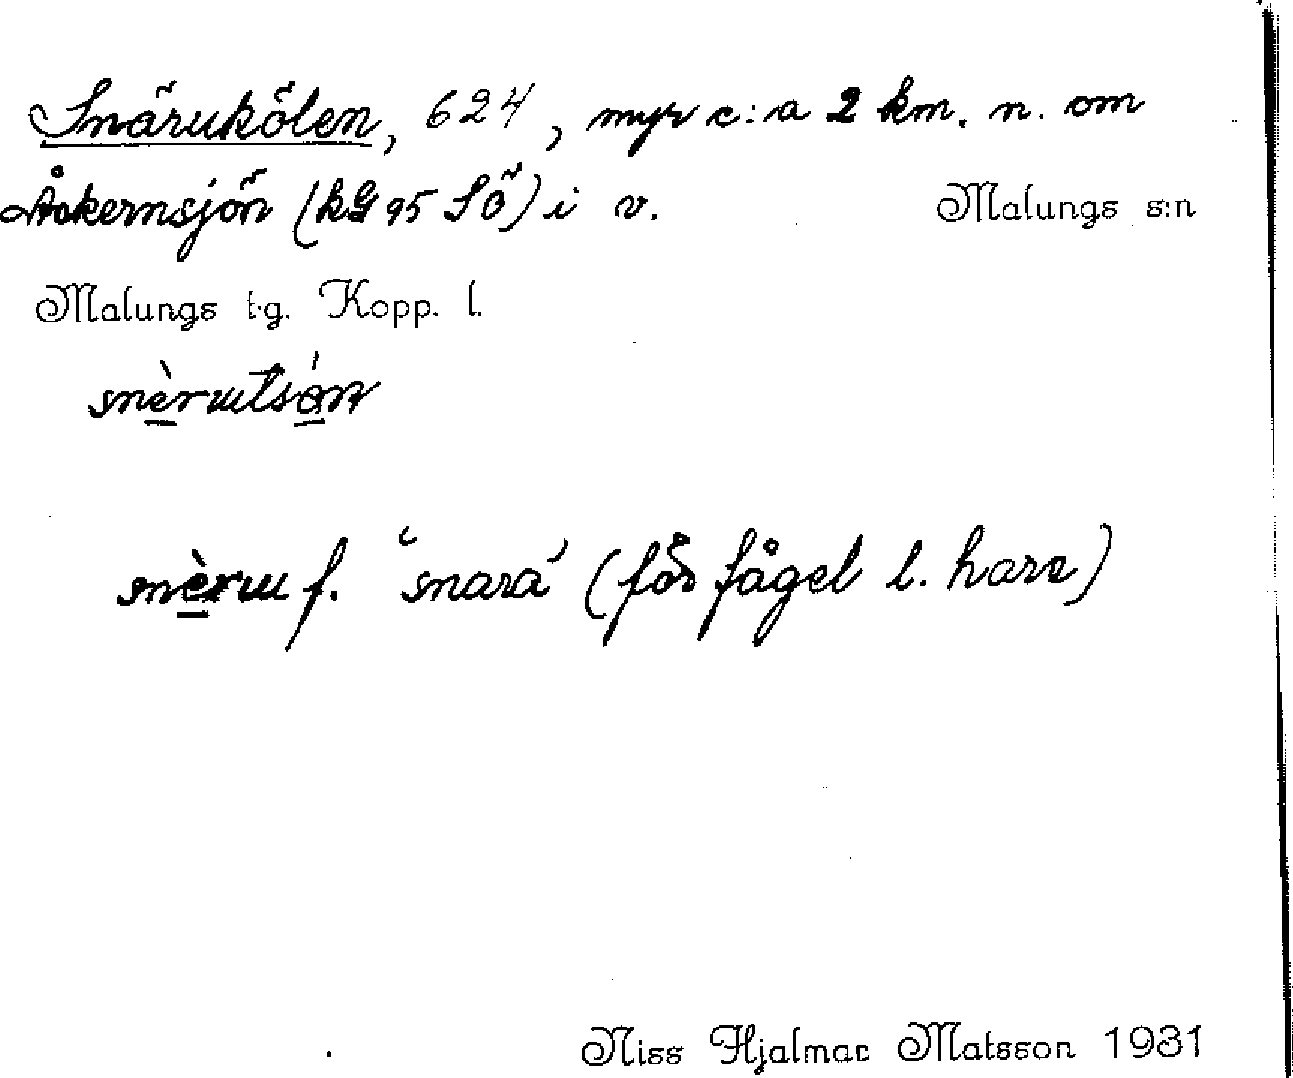 Snärukölen, 624, myr c:a 2 km. n. om
Åckernsjön (kG 95 SÖ) i v. Malungs s:n
Malungs t.g. Kopp. l.
snèrutsón
snèru f. 'snara' (för fågel l. hare)
Niss Hjalmar Matsson 1931